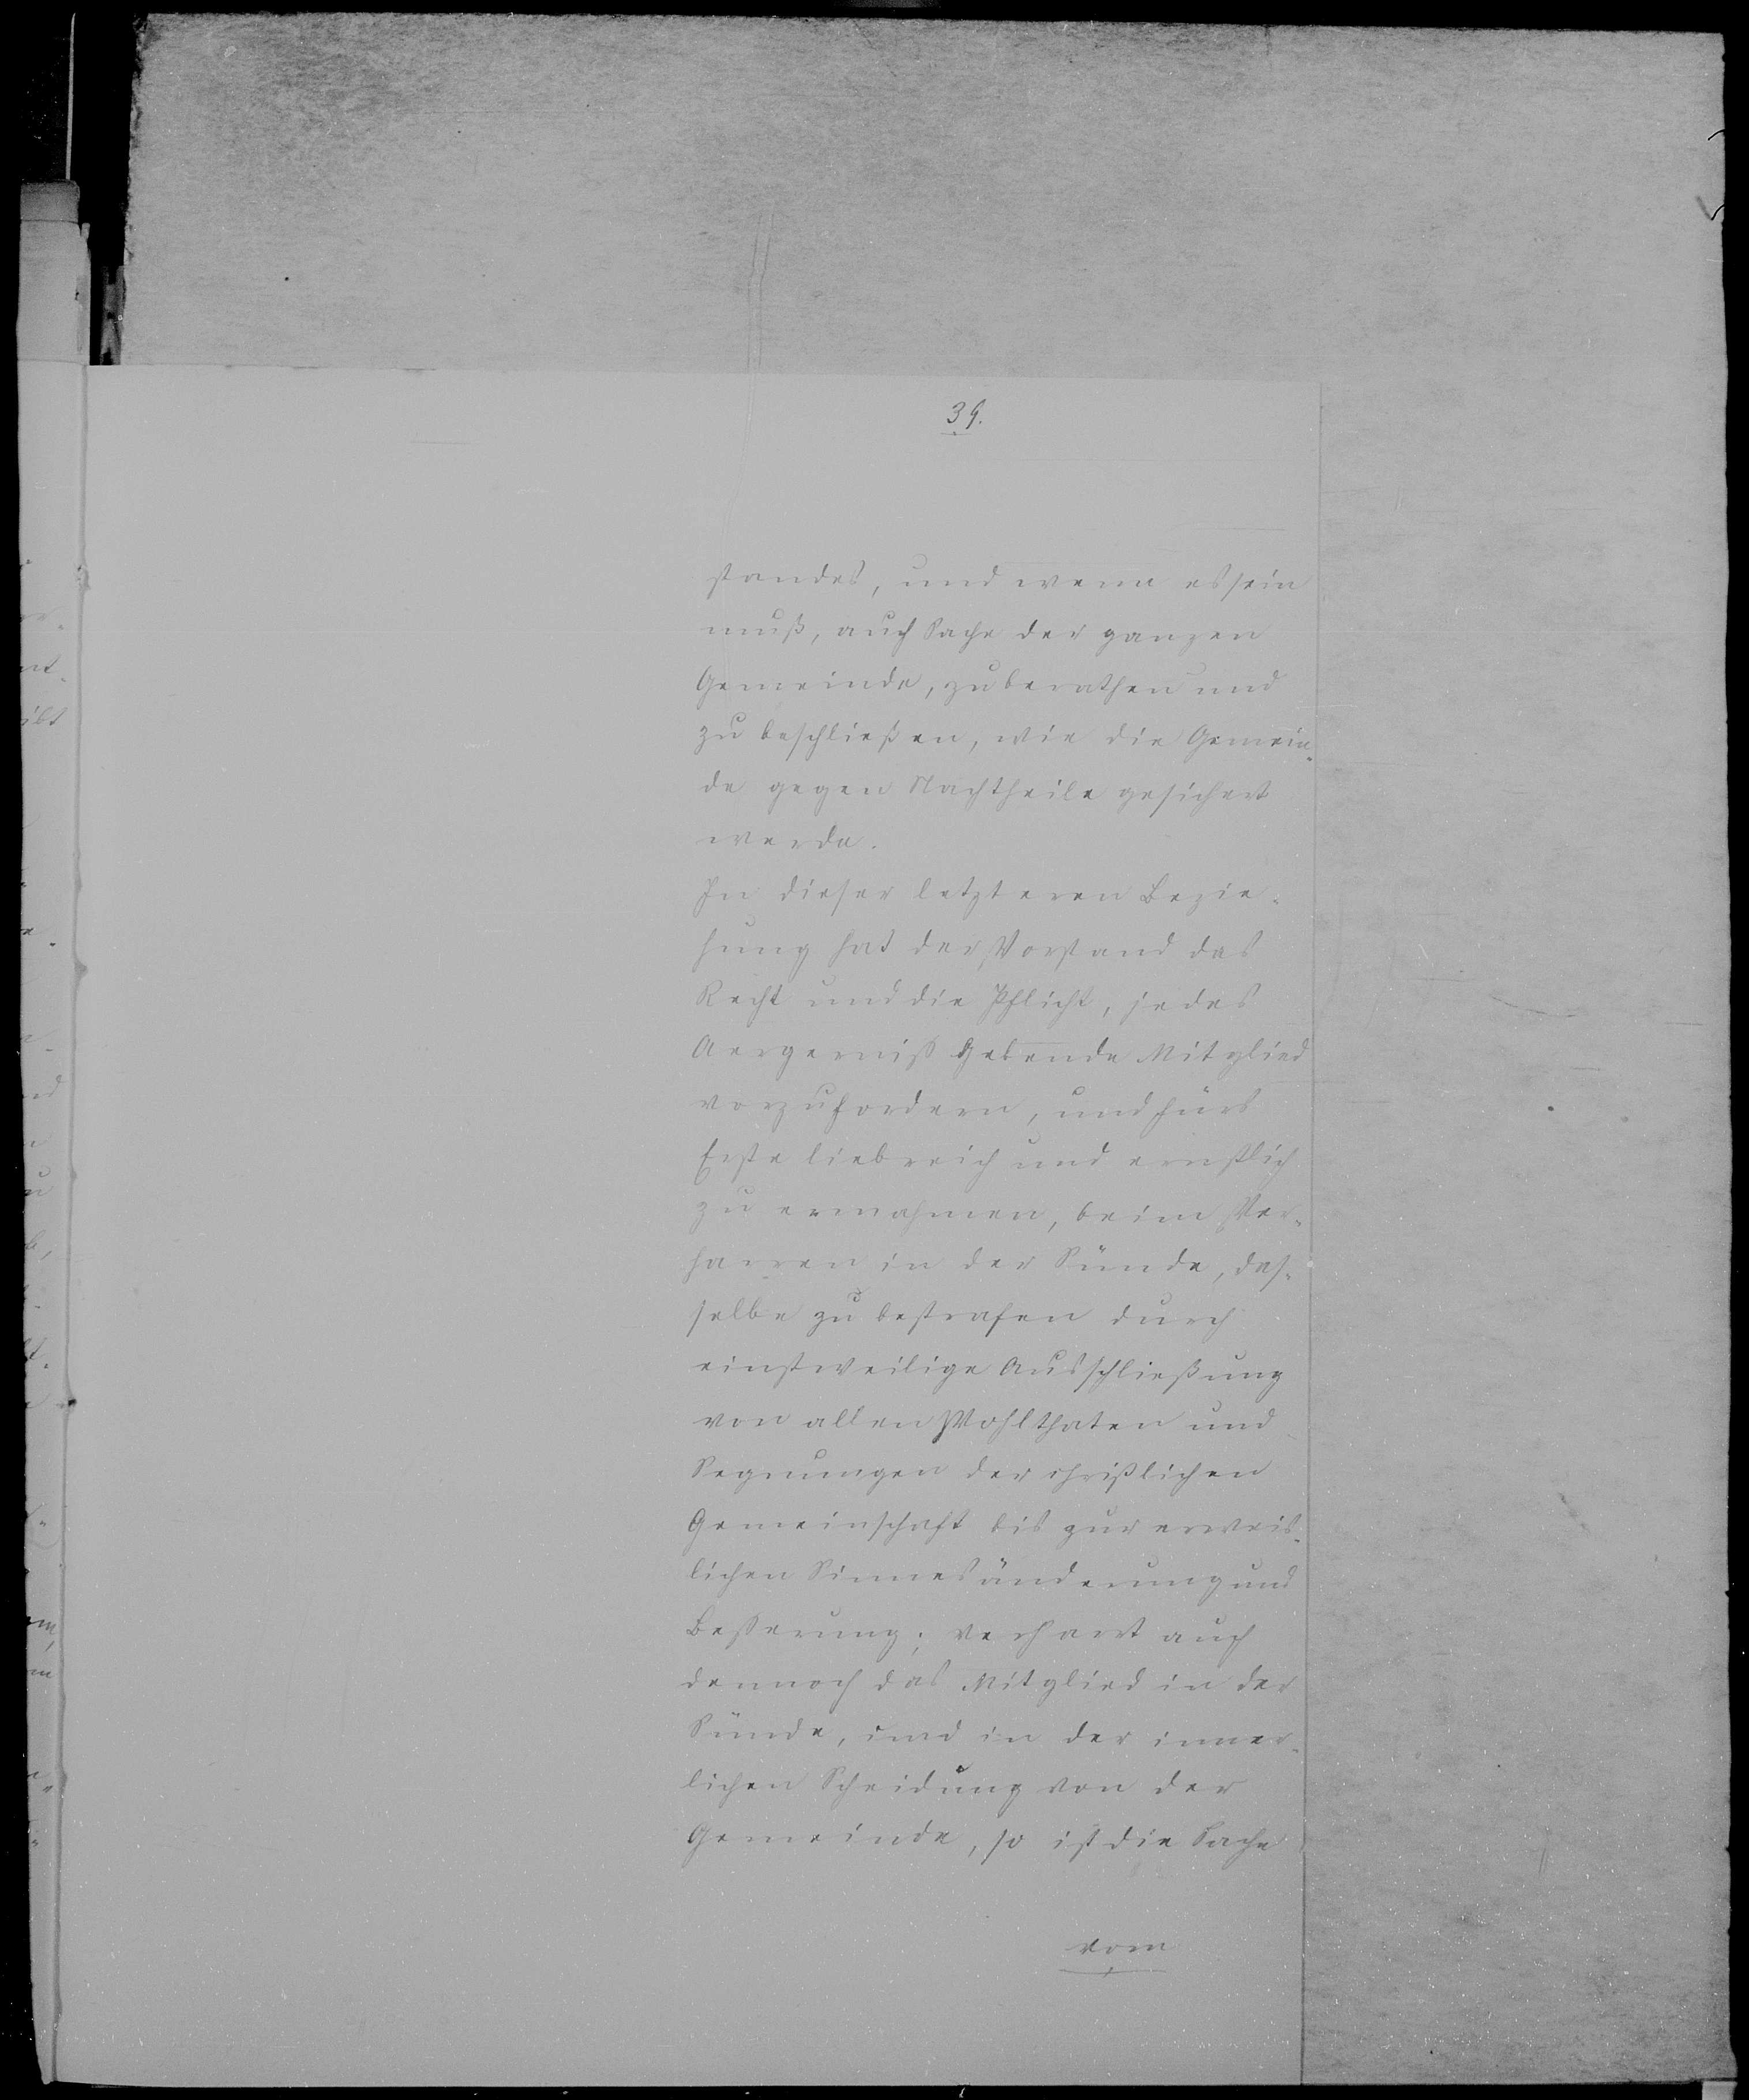 39.
standes, und wenn es sein
muß, auch Sache der ganzen
Gemeinde, zu berathen und
zu beschließen, wie die Gemein-
de gegen Nachtheile gesichert
werde.
In dieser letzteren Bezie-
hung hat der Vorstand das
Recht und die Pflicht, jedes
Aergerniß gebende Mitglied
vorzufordern, und fürs
Erste liebreich und ernstlich
zu ermahnen, beim Ver-
harren in der Sünde, das-
selbe zu bestrafen durch
einstweilige Ausschließung
von allen Wohlthaten und
Segnungen der christlichen
Gemeinschaft bis zur erweis-
lichen Sinnesänderung und
Besserung; verharrt auch
dennoch das Mitglied in der
Sünde, und in der inner-
lichen Scheidung von der
Gemeinde, so ist die Sache
vom